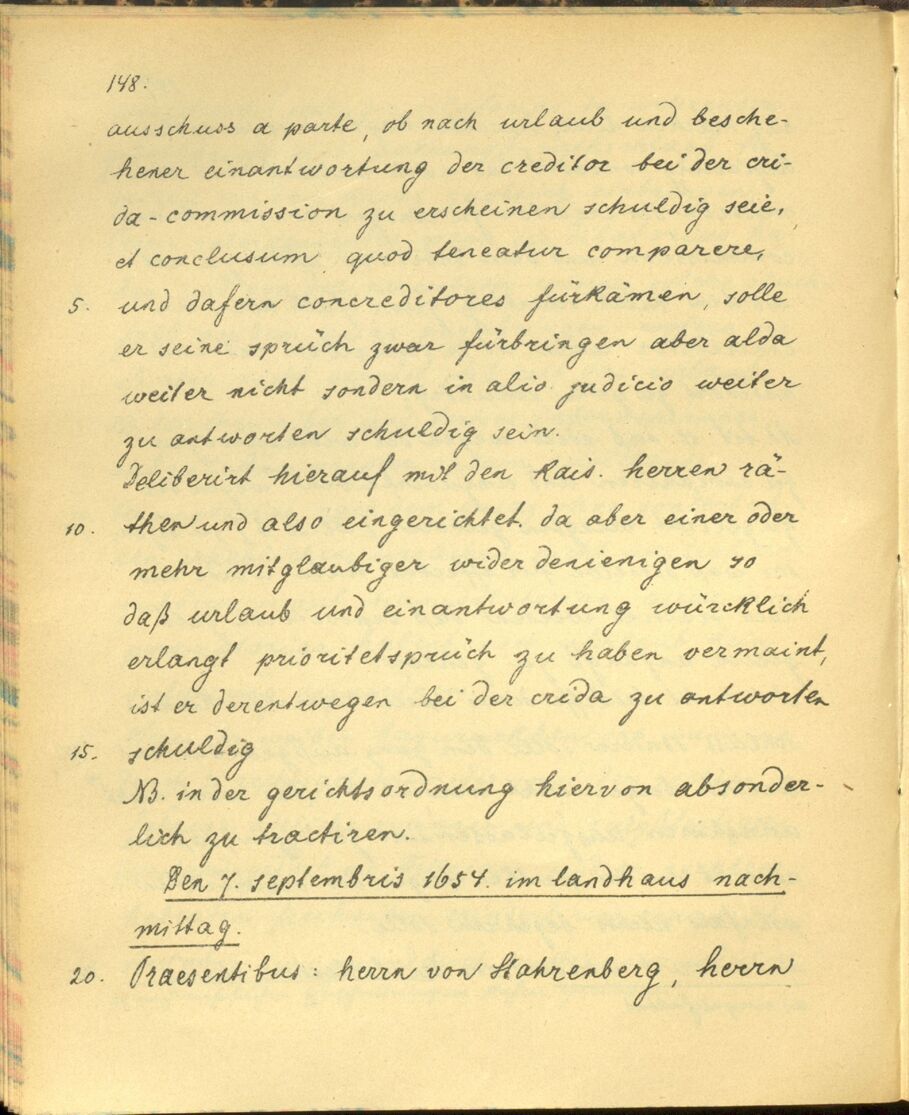 148.
ausschuss a parte, ob nach urlaub und besche-
hener einantwortung der creditor bei der cri-
da-commission zu erscheinen schuldig seie,
et conclusum quod teneatur comparere,
5. und dafern concreditores fürkämen, solle
er seine sprüch zwar fürbringen aber alda
weiter nicht sondern in alio judicio weiter
zu antworten schuldig sein.
Deliberirt hierauf mit den kais. herren rä-
10. then und also eingerichtet. da aber einer oder
mehr mitglaubiger wider denienigen so
daß urlaub und einantwortung würcklich
erlangt prioritetsprüch zu haben vermaint,
ist er derentwegen bei der crida zu antworten
15. schuldig
NB. in der gerichtsordnung hiervon absonder-
lich zu tractiren.
Den 7. septembris 1654. im landhaus nach-
mittag.
20. Praesentibus: herrn von Stahrenberg, herrn